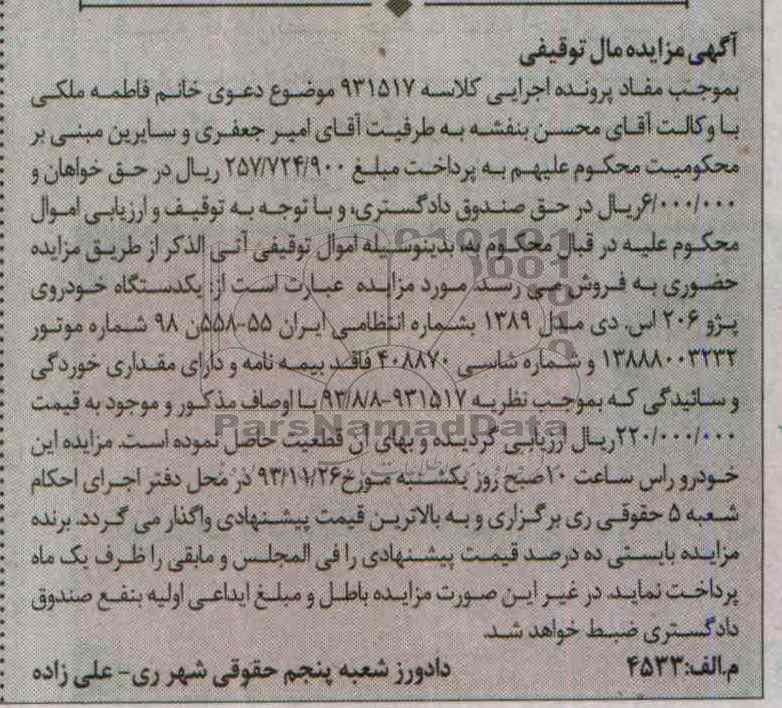 آگهی مزایده مال توقیفی
بموجب مفاد پرونده اجرایی کلاسه ۹۳۱۵۱۷ موضوع دعوی خانم فاطمه ملکی
با وکالت آقای محسن بنفشه به طرفیت آقای امیر جعفری و سایرین مبنی بر
محکومیت محکوم علیهم به پرداخت مبلغ ۲۵۷/۷۲۴/۹۰۰ ریال در حق خواهان و
۶/۰۰۰/۰۰۰ریال در حق صندوق دادگستری، و با توجه به توقیف و ارزیابی اموال
محکوم علیه در قبال محکوم به، بدینوسیله اموال توقیفی آتی الذکر از طریق مزایده
حضوری به فروش می رسد. مورد مزایده عبارت است از: یکدستگاه خودروی
پژو ۲۰۶ اس. دی مدل ۱۳۸۹ بشماره انتظامی ایران ۵۵-۵۵۸ن ۹۸ شماره موتور
۱۳۸۸۸۰۰۳۲۳۲ و شماره شاسی ۴۰۸۸۷۰ فاقد بیمه نامه و دارای مقداری خوردگی
و سائیدگی که بموجب نظریه ۹۳۱۵۱۷-۹۳/۸/۸ با اوصاف مذکور و موجود به قیمت
۲۲۰/۰۰۰/۰۰۰ریال ارزیابی گردیده و بهای آن قطعیت حاصل نموده است. مزایده این
خودرو راس ساعت ۱۰صبح روز یکشنبه مورخ۹۳/۱۱/۲۶ در محل دفتر اجرای احکام
شعبه ۵ حقوقی ری برگزاری و به بالاترین قیمت پیشنهادی واگذار می گردد. برنده
مزایده بایستی ده درصد قیمت پیشنهادی را فی المجلس و مابقی را ظرف یک ماه
پرداخت نماید. در غیر این صورت مزایده باطل و مبلغ ایداعی اولیه بنفع صندوق
دادگستری ضبط خواهد شد.
م.الف:۴۵۳۳ دادورز شعبه پنجم حقوقی شهر ری- علی زاده
ParsNamadData